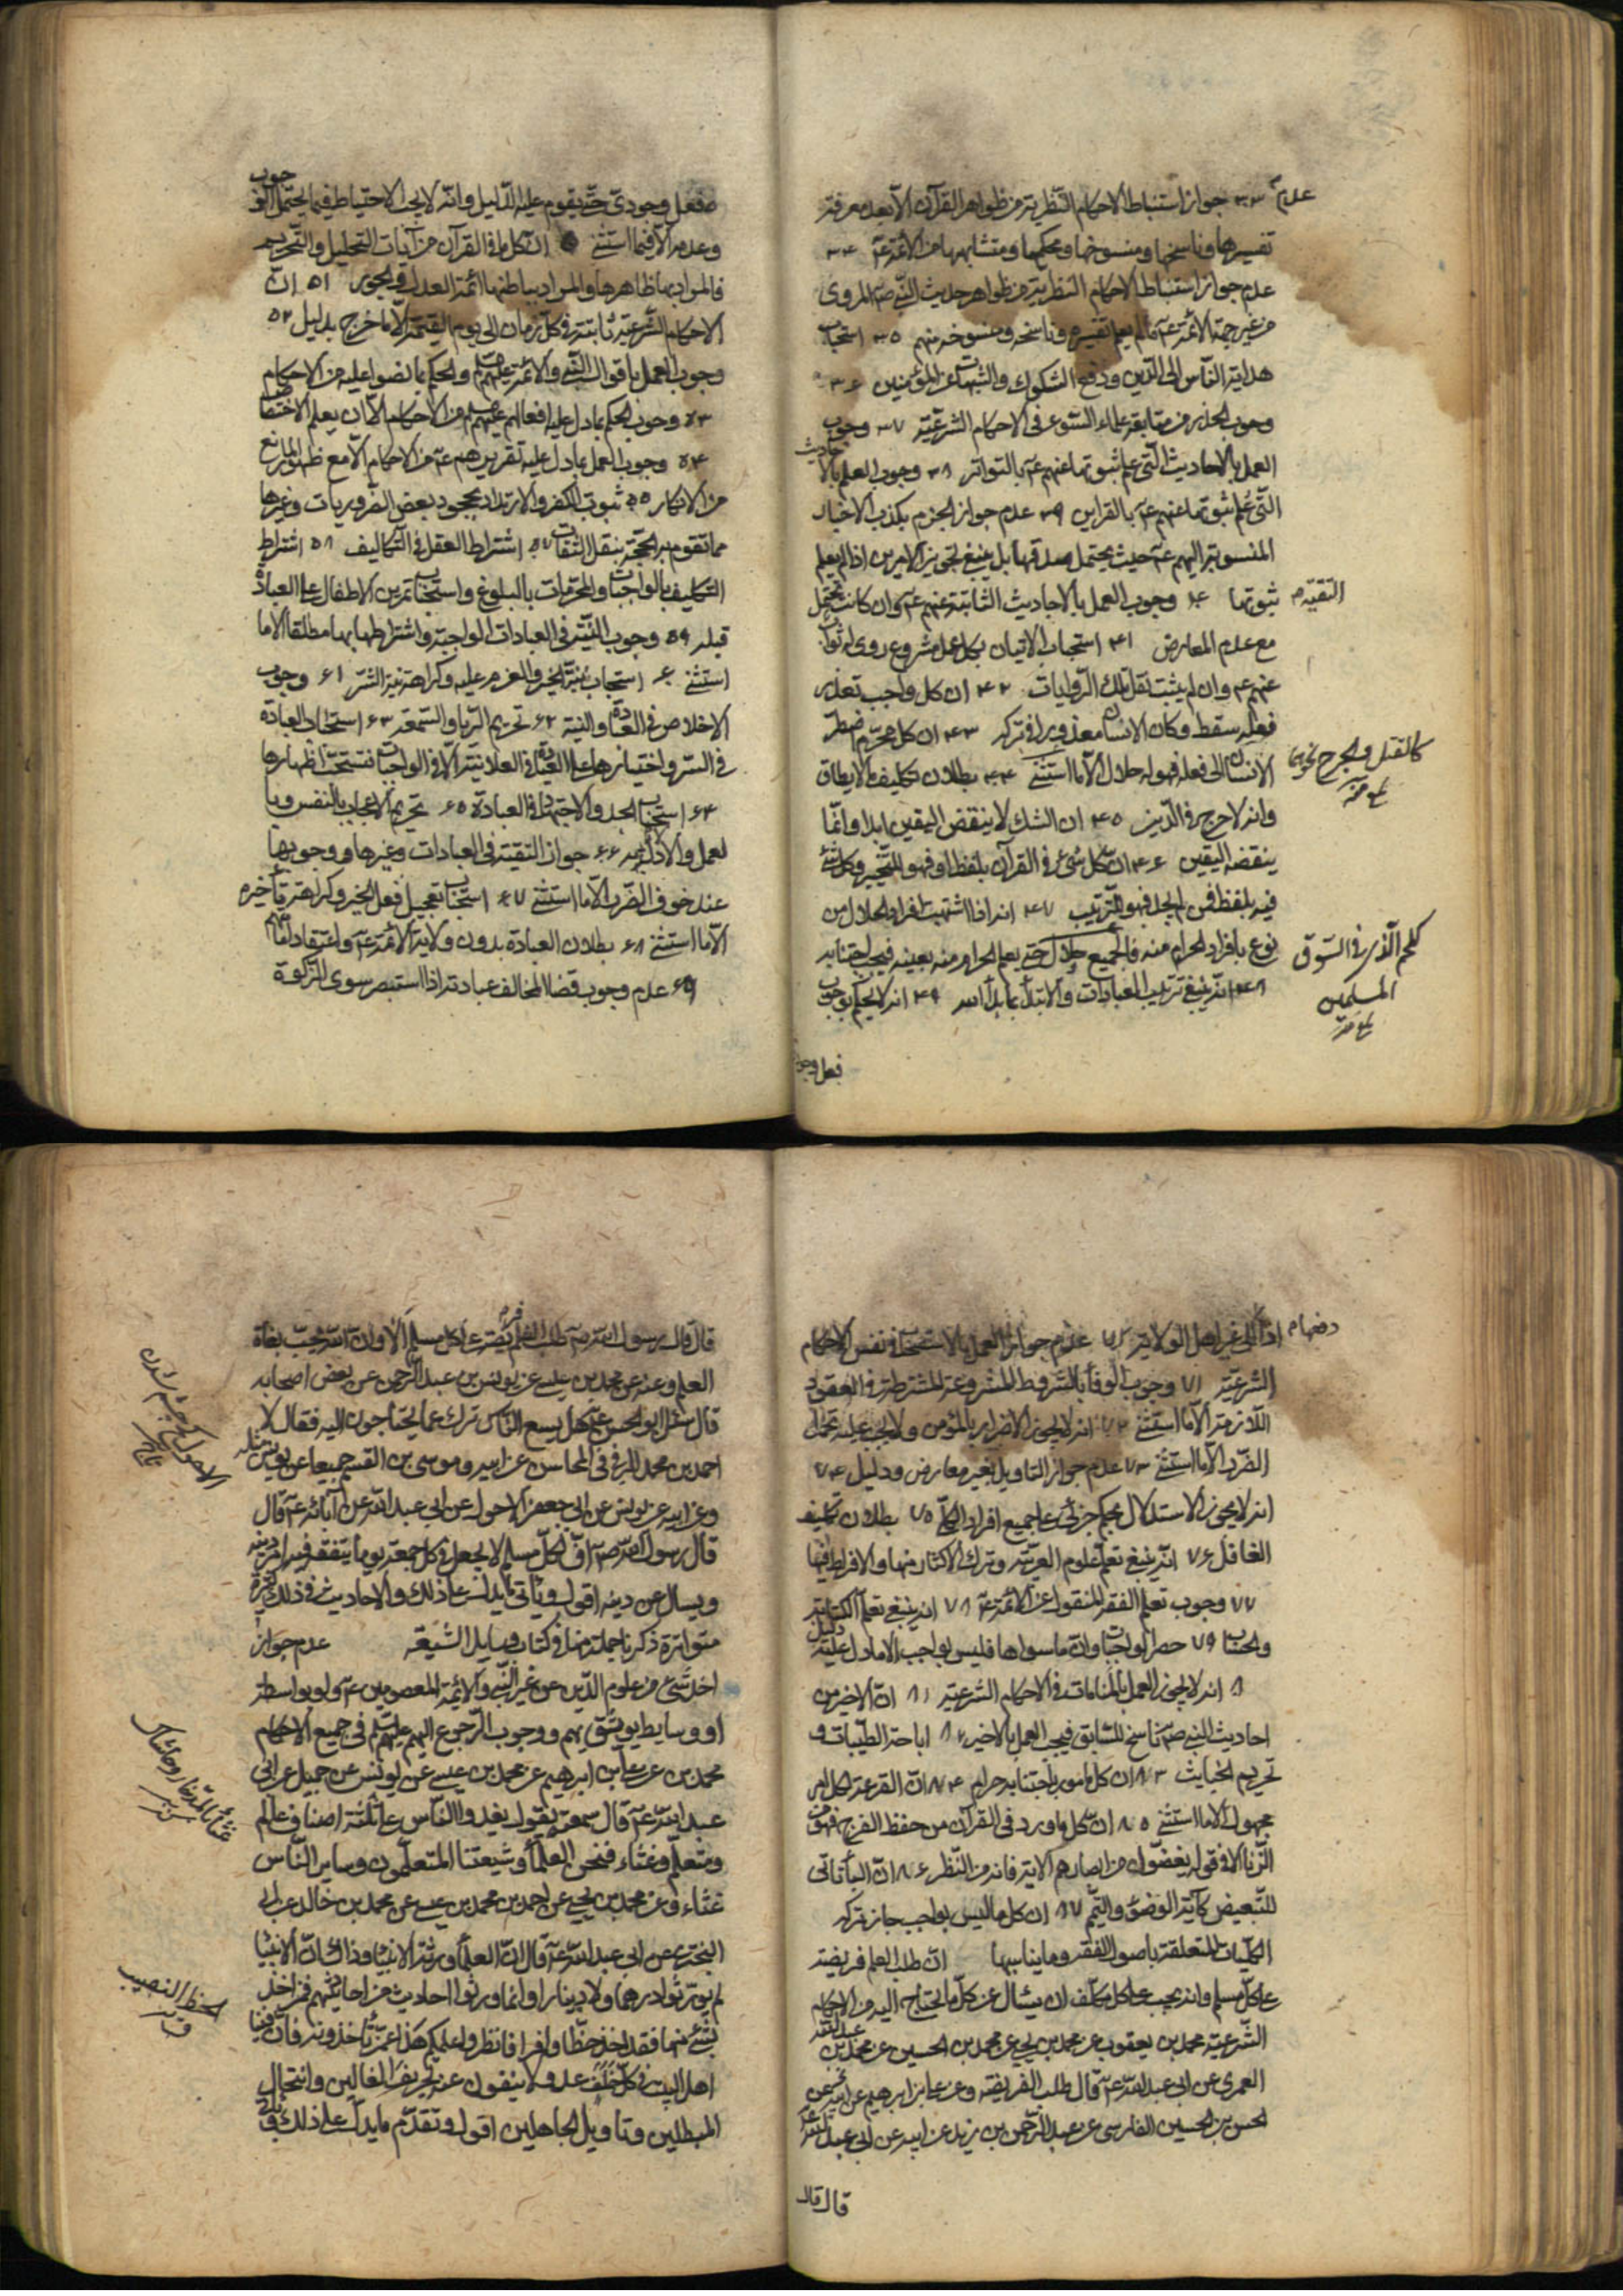 عدم ٣٣ جواز استنباط الاحكام النظرية من ظواهر القرآن الا بعد معرفة
تفسيرها وناسخها ومنسوخها ومحكمها ومتشابهها من الائمة ع ٣٤
عدم جواز استنباط الاحكام النظرية من ظواهر حديث النبي ص المروى
من غير جهة الائمة ع مالم يعلم تفسيره وناسخه ومنسوخه منهم ٣٥ استحباب
هداية الناس الى الدين ودفع الشكوك والشبهات عن المؤمنين ٣٦
وجوب الحذر من متابعة علماء السوء فى الاحكام الشرعية ٣٧ وجوب
العمل بالاحاديث التى علم ثبوتها عنهم ع بالتواتر ٣٨ وجوب العلم بالاحاديث
التى علم ثبوتها عنهم ع بالقراين ٣٩ عدم جواز الجزم بكذب الاخبار
المنسوبة اليهم ع حيث يحتمل صدقها بل ينبغى تجويز الامرين اذا لم يعلم
ثبوتها ٤٠ وجوب العمل بالاحاديث الثابتة عنهم ع وان كانت تحتمل
التقية
مع عدم المعارض ٤١ استحباب الاتيان بكل عمل مشروع روى له ثواب
عنهم ع وان لم يثبت نقل تلك الروايات ٤٢ ان كل واجب تعذر
فعله سقط وكان الانسان معذورا فى تركه ٤٣ ان كل محرم اضطر
الانسان الى فعله فهو له حلال الا ما استثنى ٤٤ بطلان تكليف ما لايطاق
كالقتل والجرح نحوهما
وانه لا حرج فى الدين ٤٥ ان الشك لا ينقض اليقين ابدا وانما
ينقضه اليقين ٤٦ ان كل شىء فى القرآن بلفظ او فهو للتخيير وكل شئ
فيه بلفظ فمن لم يجد فهو للترتيب ٤٧ انه اذا اشتبهت افراد الحلال من
نوع بافراد الحرام منه فالجميع حلال حتى يعلم الحرام منه بعينه فيجب اجتنابه
كلحم الذى فى السوق
المسلمين
٤٨ انه ينبغى ترتيب العبادات والابتداء بما بدأ الله ٤٩ انه لا يحكم بوجوب
فعل وجودى
فعل وجودى حتى يقوم عليه الدليل وانه لا يجب الاحتياط فيما يحتمل الوجوب
وعدمه الا فيما استثنى ان كل ما فى القرآن من آيات التحليل والتحريم
فالمراد بها ظاهرها والمراد بباطنها ائمة العدل والجور ٥١ ان
الاحكام الشرعية ثابتة فى كل زمان الى يوم القيمة الا ما خرج بدليل ٥٢
وجوب العمل باقوال النبى والائمة عليهم السلم والحكم بما نصوا عليه من الاحكام
٥٣ وجوب الحكم بما دل عليه افعالهم عليهم السلم من الاحكام الا ان يعلم الاختصاص
٥٤ وجوب العمل بما دل عليه تقريرهم ع من الاحكام الا مع ظهور المانع
من الانكار ٥٥ ثبوت الكفر والارتداد بجحود بعض الضروريات وغيرها
مما تقوم به الحجة بنقل الثقات ٥٧ اشتراط العقل فى التكاليف ٥٨ اشتراط
التكليف بالواجبات والمحرمات بالبلوغ واستحباب تمرين الاطفال على العبادة
قبله ٥٩ وجوب النية فى العبادات الواجبة واشتراطها بها مطلقا الا ما
استثنى ٦٠ استحباب نية الخير والعزم عليه وكراهة نية الشر ٦١ وجوب
الاخلاص فى العبادة والنية ٦٢ تحريم الريا والسمعة ٦٣ استحباب العبادة
فى السر واختيارها على العبادة فى العلانية الا فى الواجبات فتستحب اظهارها
٦٤ استحباب الجد والاجتهاد فى العبادة ٦٥ تحريم الاعجاب بالنفس وبا
لعمل والادلال به ٦٦ جواز التقية فى العبادات وغيرها ووجوبها
عند خوف الضرر الا ما استثنى ٦٧ استحباب تعجيل فعل الخير وكراهة تأخيره
الا ما استثنى ٦٨ بطلان العبادة بدون ولاية الائمة ع واعتقاد امامتهم
٦٩ عدم وجوب قضا المخالف عبادته اذا استبصر سوى الزكوة
اذا دفعها الى غير اهل الولاية ٧٠ عدم جواز العمل بالاستصحاب فى نفس الاحكام
الشرعية ٧١ وجوب الوفا بالشروط المشروعة المشترطة فى العقود
اللازمة الا ما استثنى ٧٢ انه لا يجوز الاضرار بالمؤمن ولا يجب عليه تحمل
الضرر الا ما استثنى ٧٣ عدم جواز التاويل بغير معارض ودليل ٧٤
انه لا يجوز الاستدلال بحكم جزئى على جميع افراد الكلى ٧٥ بطلان تكليف
الغافل ٧٦ انه ينبغى تعلم علوم العربية وترك الاكثار منها والافراط فيها
٧٧ وجوب تعلم الفقه المنقول عن الائمة ع ٧٨ انه ينبغى تعلم الكتابة
والحساب ٧٩ حصر الواجبات وان ما سواها فليس بواجب الا ما دل عليه دليل
٨٠ انه لا يجوز العمل بالمنامات فى الاحكام الشرعية ٨١ ان الاخير من
احاديث النبى ص ناسخ للسابق فيجب العمل بالاخير ٨٢ اباحة الطيبات و
تحريم الخبايث ٨٣ ان كل مامور باجتنابه حرام ٨٤ ان القرعة لكل امر
مجهول الا ما استثنى ٨٥ ان كل ما ورد فى القرآن من حفظ الفرج فهو من
الزنا الا فى قوله يغضوا من ابصارهم الاية فانه من النظر ٨٦ ان الباء تاتى
للتبعيض كآية الوضوء والتيمم ٨٧ ان كل ما ليس بواجب جاز تركه
الكليات المتعلقة باصول الفقه وما يناسبها ان طلب العلم فريضة
على كل مسلم وانه يجب على كل مكلف ان يسال عن كل ما يحتاج اليه من الاحكام
الشرعية محمد بن يعقوب عن محمد بن يحيى عن محمد بن الحسين عن محمد بن عبد الله
العمرى عن ابى عبد الله ع قال طلب العلم فريضة وعن على بن ابرهيم عن ابيه عن
الحسن بن الحسين الفارسى عن عبد الرحمن بن زيد عن ابيه عن ابى عبد الله ع
قال قال
قال قال رسول الله ص طلب العلم فريضة على كل مسلم الا وان الله يحب بغاة
العلم وعنه عن محمد بن عيسى عن يونس بن عبد الرحمن عن بعض اصحابه
قال سئل ابو الحسن ع هل يسع الناس ترك عما يحتاجون اليه فقال لا
احمد بن محمد البرقى فى المحاسن عن ابيه وموسى بن القسم جميعا عن يونس مثله
وعن ابيه عن يونس عن ابى جعفر الاحول عن ابى عبد الله عن آبائه ع قال
قال رسول الله ص اف لكل مسلم لا يجعل فى كل جمعة يوما يتفقه فيه امر دينه
ويسال عن دينه اقول ويأتى ما يدل على ذلك والاحاديث فى ذلك كثيرة
متواترة ذكرنا جملة منها فى كتاب وسايل الشيعة عدم جواز
اخذ شئ من علوم الدين عن غير النبى والائمة المعصومين ع ولو بواسطة
او وسايط يوثق بهم ووجوب الرجوع اليهم عليهم السلم فى جميع الاحكام
محمد عن على بن ابرهيم عن محمد بن عيسى عن يونس عن جميل عن ابى
عبد الله ع قال سمعته يقول يغدوا الناس على ثلثة اصناف عالم
ومتعلم وغثاء فنحن العلماء وشيعتنا المتعلمون وساير الناس
غثاء وعن محمد بن يحيى عن احمد بن محمد بن عيسى عن محمد بن خالد عن ابى
البخترى عن ابى عبد الله ع قال ان العلماء ورثة الانبيا وذاك ان الانبيا
لم يورثوا درهما ولا دينارا وانما ورثوا احاديث من احاديثهم فمن اخذ
بشئ منها فقد اخذ حظا وافرا فانظروا علمكم هذا عمن تأخذونه فان فينا
اهل البيت فى كل خلف عدولا ينفون عنه تحريف الغالين وانتحال
المبطلين وتاويل الجاهلين اقول وتقدم ما يدل على ذلك و
الحظ النصيب